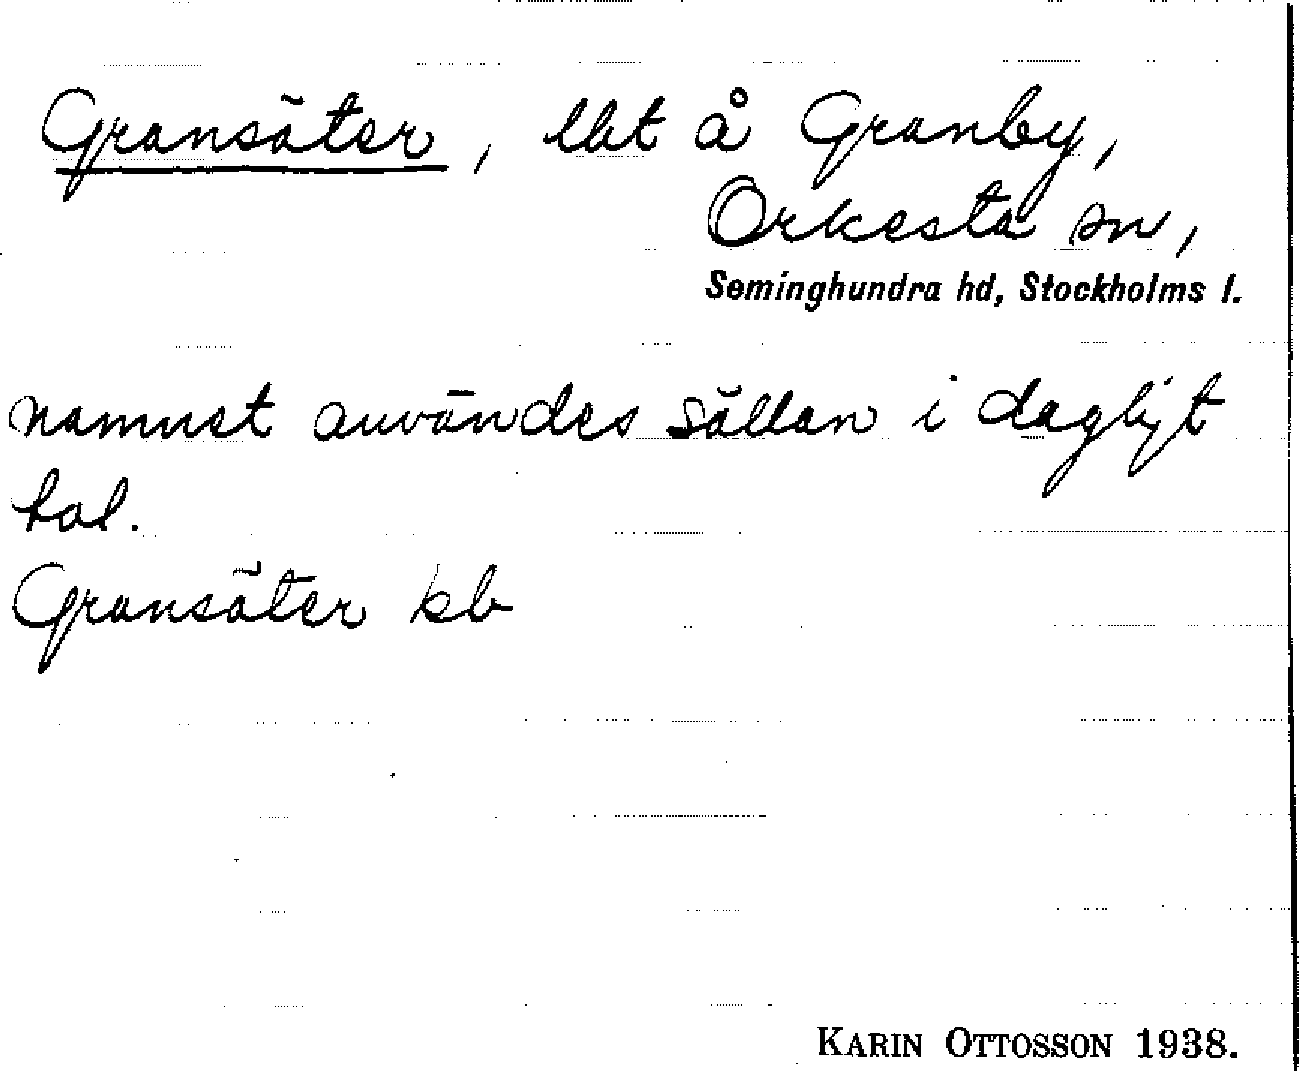 Gransäter, lht å Granby,
Orkesta sn,
Seminghundra hd, Stockholms l.
namnet användes sällan i dagligt
tal.
Gransäter kb
KARIN OTTOSSON 1938.